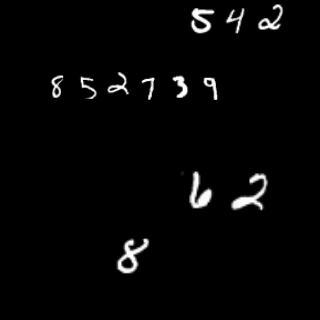 542
852739
62
8